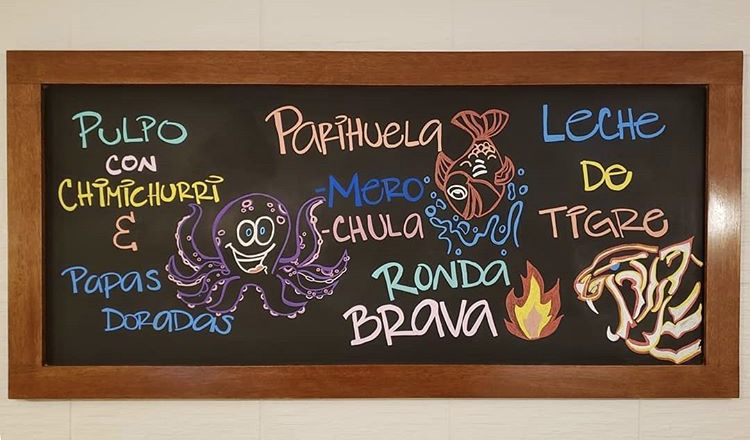 PULPO
CON
CHIMICHURRI
&
PAPAS
DORADAS
PARIHUELA
-MERO
-CHULA
RONDA
BRAVA
LECHE
DE
TIGRE